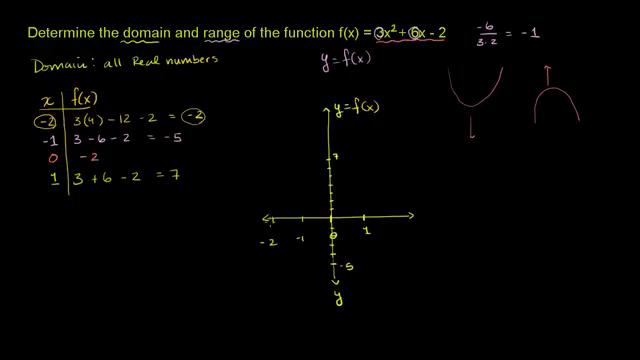 Determine the domain and range of the function f(x) = 3x² + 6x - 2
-6 / 3·2 = -1
Domain: all Real numbers
y = f(x)
x | f(x)
-2 | 3(4) - 12 - 2 = -2
-1 | 3 - 6 - 2 = -5
0 | -2
1 | 3 + 6 - 2 = 7
y = f(x)
7
-2 -1 0 1
-5
y